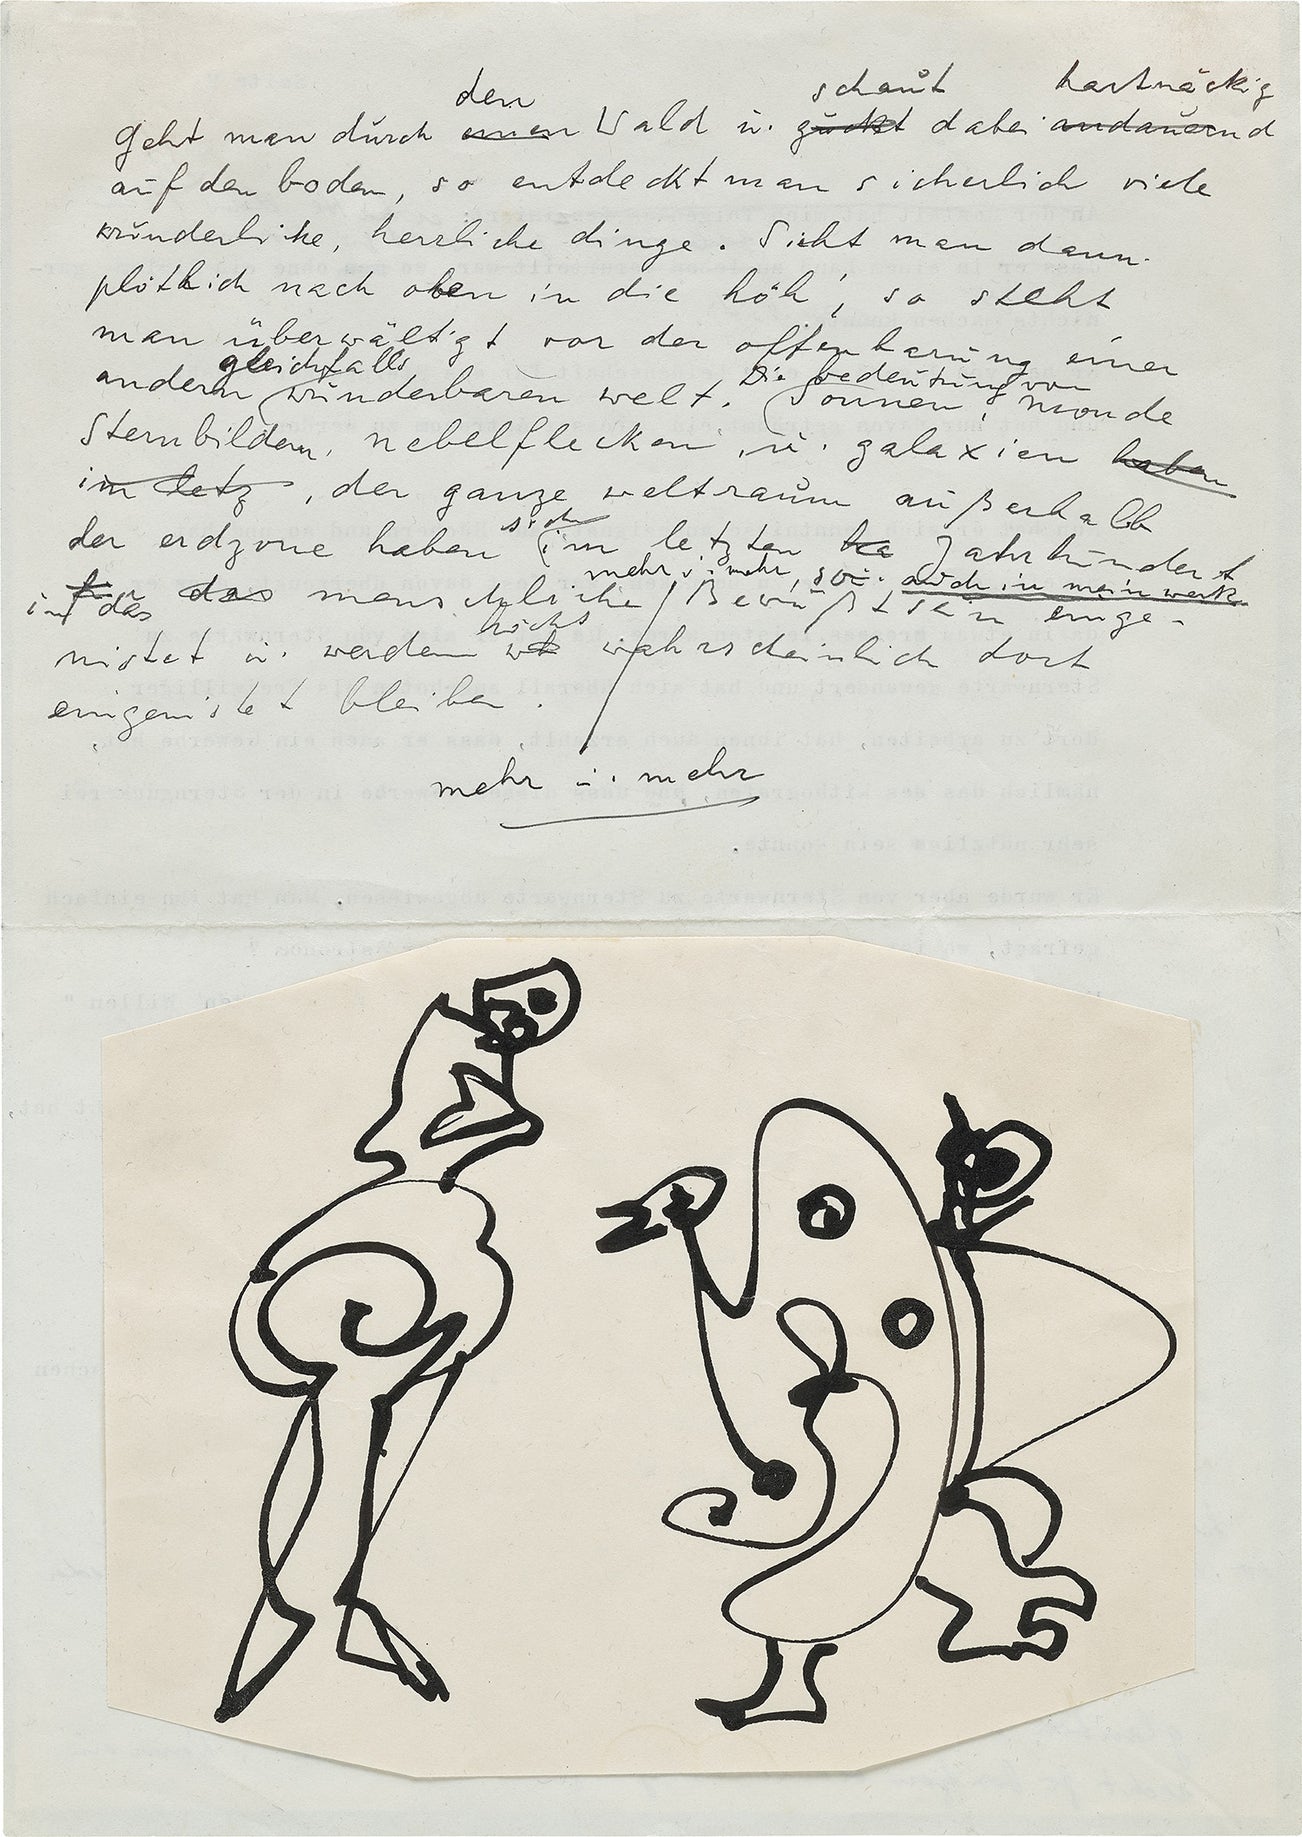 den schaut hartnäckig
geht man durch einen Wald u. guckt dabei andauernd
auf den boden, so entdeckt man sicherlich viele
wunderliche, herrliche dinge. Sieht man dann
plötzlich nach oben in die höh', so steht
man überwältigt vor der offenbarung einer
gleichfalls Die bedeutung von
andern wunderbaren welt. Sonnen, monde
Sternbildern, nebelflecken, u. galaxien haben
im letz, der ganze weltraum außerhalb
sich
der erdzone haben im letzten Jahrhundert
mehr u. mehr, so auch in mein werk
in das das menschliche Bewußtsein einge-
höchst
nistet u. werden wahrscheinlich dort
eingenistet bleiben.
mehr u. mehr